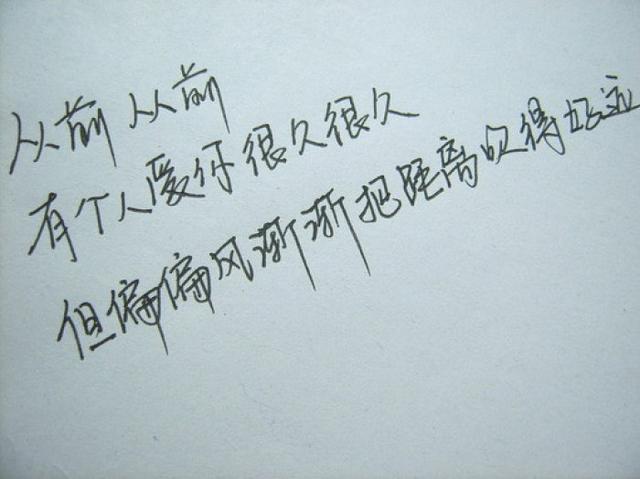 从前从前
有个人爱你很久很久
但偏偏风渐渐把距离吹得好远